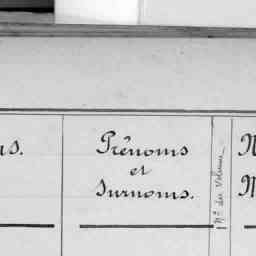 Prénoms
et
Surnoms.
N.º du Volume